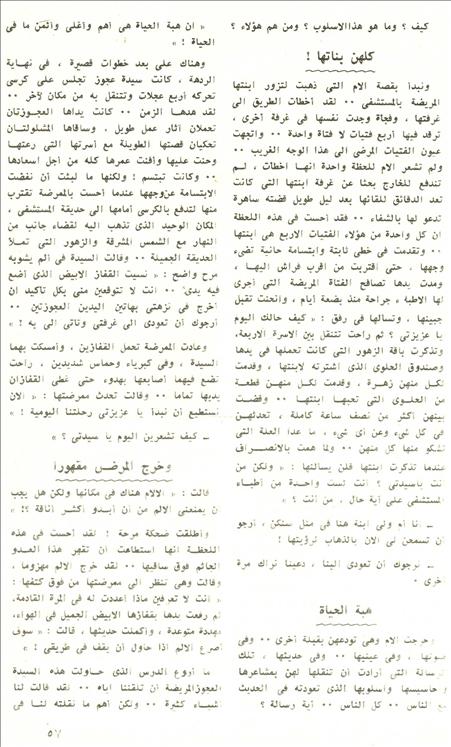 كيف ؟ وما هو هذا الاسلوب ؟ ومن هم هؤلاء ؟
كلهن بناتها !
ونبدأ بقصة الام التى ذهبت لتزور ابنتها
المريضة بالمستشفى ٠٠ لقد أخطأت الطريق الى
غرفتها ، وفجأة وجدت نفسها فى غرفة أخرى ،
ترقد فيها أربع فتيات لا فتاة واحدة ٠٠ واتجهت
عيون الفتيات المرضى الى هذا الوجه الغريب ٠٠
ولم تشعر الام للحظة واحدة انها اخطات ، لم
تندفع للخارج بحثا عن غرفة ابنتها التى كانت
تعد الدقائق للقائها بعد ليل طويل قضته ساهرة
تدعو لها بالشفاء ٠٠ فقد أحست فى هذه اللحظة
ان كل واحدة من هؤلاء الفتيات الاربع هى ابنتها
٠٠ وتقدمت فى خطى ثابتة وابتسامة حانية تضىء
وجهها ، حتى اقتربت من اقرب فراش اليها ،
ومدت يدها تصافح الفتاة المريضة التى أجرى
لها الاطباء جراحة منذ بضعة أيام ، وانحنت تقبل
جبينها ، وتسألها فى رفق : « كيف حالك اليوم
يا عزيزتى ؟ ثم راحت تتنقل بين الاسرة الاربعة ،
وتذكرت باقة الزهور التى كانت تحملها فى يدها
وصندوق الحلوى الذى اشترته لابنتها ، وقدمت
لكل منهن زهرة ، وقدمت لكل منهن قطعة
من الحلوى التى تحبها ابنتها ٠٠ وقضت
بينهن اكثر من نصف ساعة كاملة ، تحدثهن
فى كل شىء وعن أى شىء ، ما عدا العلة التى
تشكو منها كل منهن ٠٠ ولما همت بالانصراف
عندما تذكرت ابنتها قلن يسألنها : « ولكن من
انت ياسيدتى ؟ انت لست واحدة من أطباء
المستشفى على أية حال ، من أنت ؟ »
ــ أنا أم ولى ابنة هنا فى مثل سنكن ، أرجو
ان تسمحن لى الان بالذهاب لرؤيتها !
ــ نرجوك أن تعودى الينا ، دعينا نراك مرة
أخرى ٠
هبة الحياة
وخرجت الام وهى تودعهن بقبلة أخرى ٠٠ وفى
صوتها ، وفى عينيها ٠٠ وفى حديثها ، تلك
الرسالة التى أرادت أن تنقلها لهن بمشاعرها
وأحاسيسها وأسلوبها الذى تعودته فى الحديث
مع الناس ٠٠ كل الناس ٠٠ أية رسالة ؟
« ان هبة الحياة هى أهم وأغلى وأثمن ما فى
الحياة ! »
وهناك على بعد خطوات قصيرة ، فى نهاية
الردهة ، كانت سيدة عجوز تجلس على كرسى
تحركه أربع عجلات وتتنقل به من مكان لآخر ٠٠
لقد هدها الزمن ٠٠ كانت يداها العجوزتان
تحملان آثار عمل طويل ، وساقاها المشلولتان
تحكيان قصتها الطويلة مع أسرتها التى رعتها
وحنت عليها وأفنت عمرها كله من أجل اسعادها
٠٠ وكانت تبتسم ! ولكنها ما لبثت أن نفضت
الابتسامة عن وجهها عندما أحست بالممرضة تقترب
منها لتدفع بالكرسى أمامها الى حديقة المستشفى ،
المكان الوحيد الذى تذهب اليه لقضاء جانب من
النهار مع الشمس المشرقة والزهور التى تملأ
الحديقة الجميلة ٠٠ وقالت السيدة فى ألم يشوبه
مرح واضح : « نسيت القفاز الابيض الذى أضع
فيه يدى ٠٠ انت لا تتوقعين منى بكل تأكيد ان
أخرج فى نزهتى بهاتين اليدين العجوزتين ٠٠
أرجوك أن تعودى الى غرفتى وتأتى الى به ! »
وعادت الممرضة تحمل القفازين ، وأمسكت بهما
السيدة ، وفى كبرياء وحماس شديدين ، راحت
تضع فيهما أصابعها بهدوء حتى غطى القفازان
يديها تماما ٠٠ وقالت تحدث ممرضتها : « الان
نستطيع أن نبدأ يا عزيزتى رحلتنا اليومية ! »
ــ كيف تشعرين اليوم يا سيدتى ؟ »
وخرج المرض مقهورا
قالت : « الالام هناك فى مكانها ولكن هل يجب
ان يمنعنى الالم من أن أبدو أكثر أناقة ؟! »
وأطلقت ضحكة مرحة ! لقد أحست فى هذه
اللحظة انها استطاعت أن تقهر هذا العدو
الجاثم فوق ساقيها ٠٠ لقد خرج الالم مهزوما ،
وقالت وهى تنظر الى ممرضتها من فوق كتفها :
« انت لا تعرفين ماذا أعددت له فى المرة القادمة ،
ثم رفعت يدها بقفازها الابيض الجميل فى الهواء ،
مهددة متوعدة ، وأكملت حديثها ، قالت : « سوف
أصرع الالم اذا حاول أن يقف فى طريقى ! »
ما أروع الدرس الذى حاولت هذه السيدة
العجوز المريضة أن تلقننا اياه ٠٠ لقد قالت لنا
أشياء كثيرة ٠٠ ولكن أهم ما نقلته لنا فى
٥٧